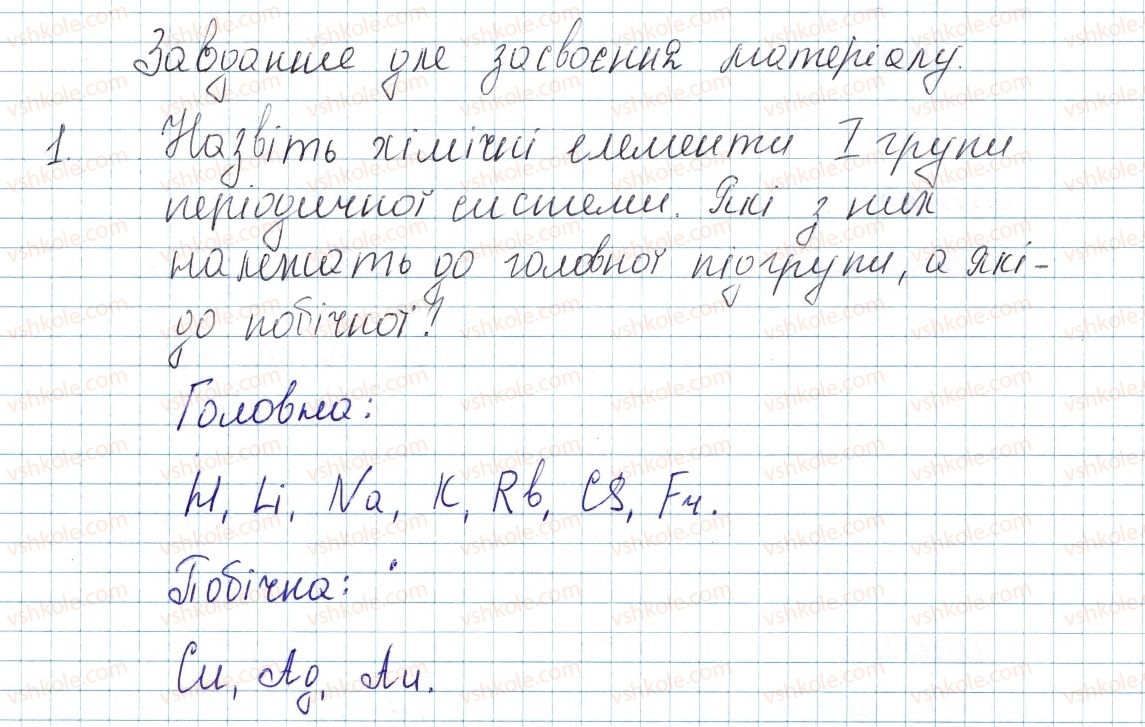 Завдання для засвоєння матеріалу.
1. Назвіть хімічні елементи I групи
періодичної системи. Які з них
належать до головної підгрупи, а які -
до побічної?
Головна:
H, Li, Na, K, Rb, Cs, Fr.
Побічна:
Cu, Ag, Au.